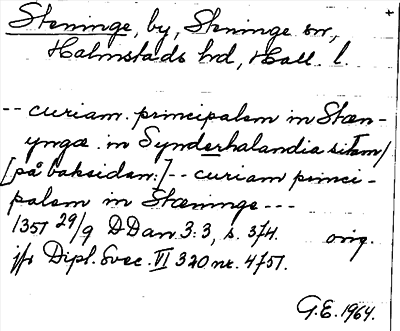 Steninge, by, Steninge sn,
Halmstads hd, Hall. l.
-- curiam principalem in Stæn-
yngæ in Synderhalandia sitam/
[på baksidan:]-- curiam princi-
palem in Stæninge ---
1357 29/9 DDan. 3:3, s. 374. orig.
jfr Dipl. Svec. VI 320 nr. 4757.
G.E. 1964.